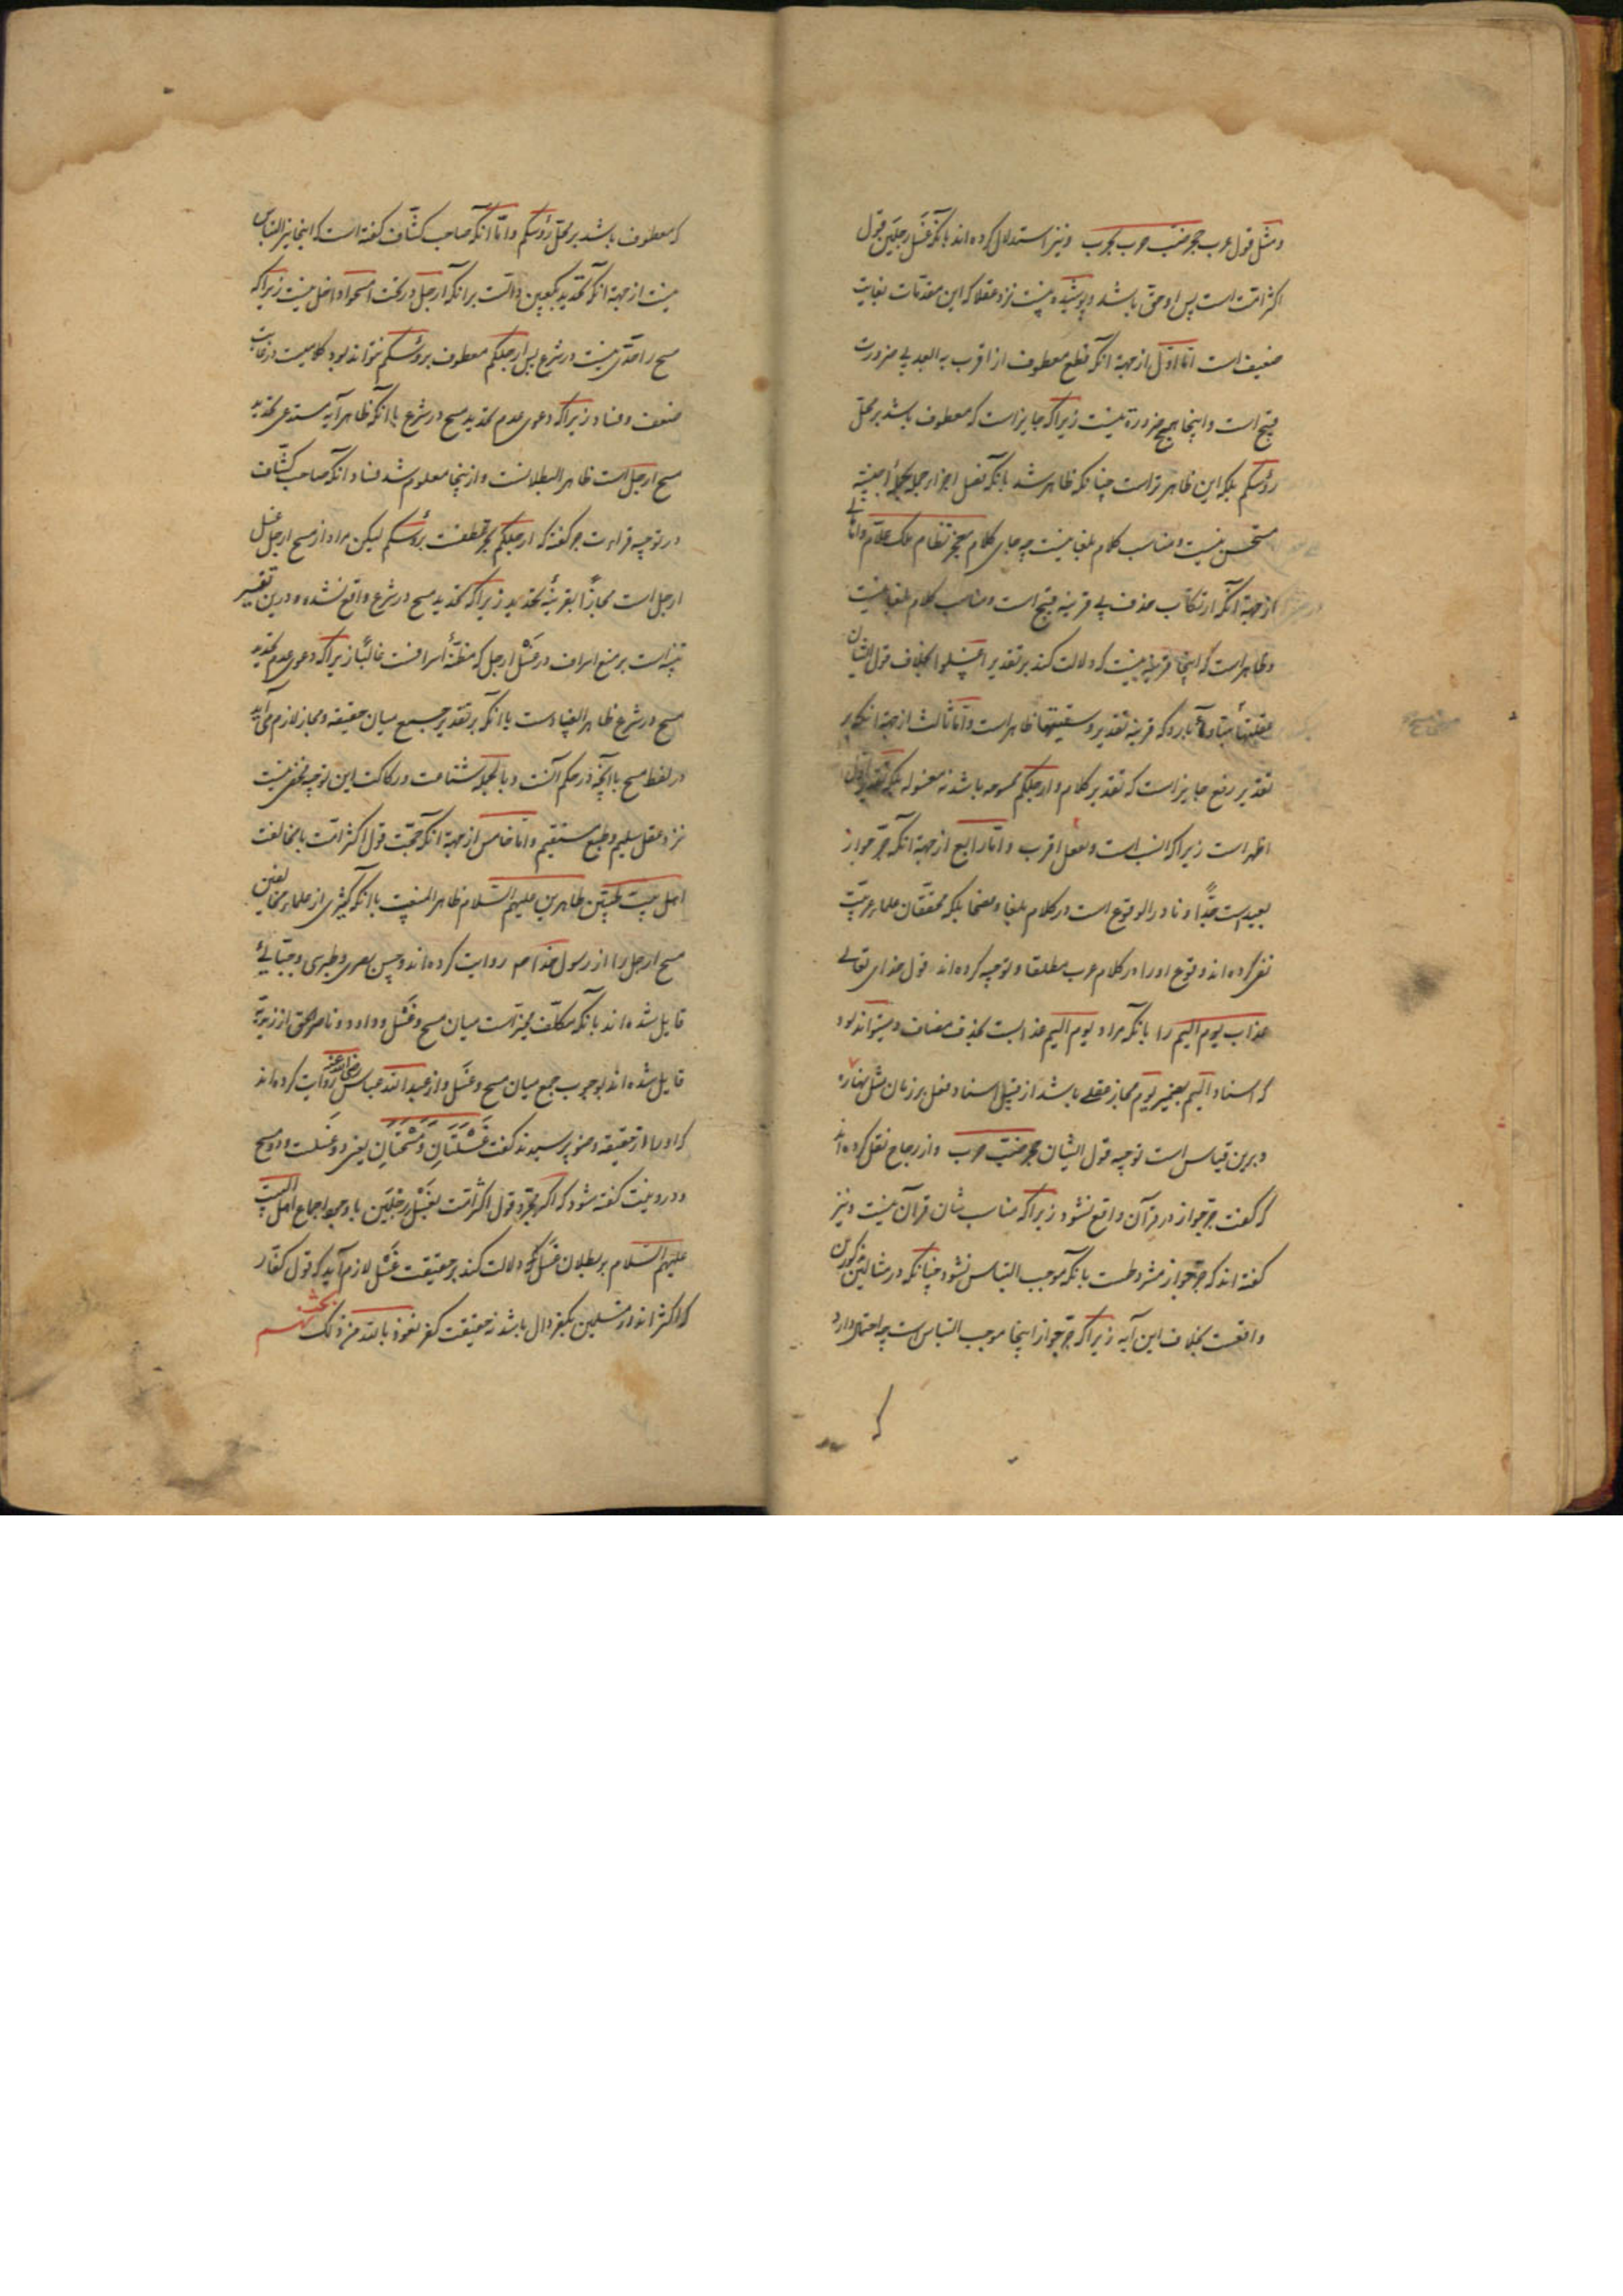 و مثل قول عرب جحر ضب خرب بجر خرب و نیز استدلال کرده‌اند بآنکه غسل رجلین قول
اکثر امتست پس او حق باشد و پوشیده نیست نزد عقلا که این مقدمات بغایت
ضعیف است اما اول از جهة آنکه قطع معطوف از اقرب به ابعد بی ضرورت
قبیح است و اینجا هیچ ضرورة نیست زیرا که جایز است که معطوف باشد بر محل
رؤسکم بلکه این ظاهرتر است چنانکه ظاهر شد بآنکه فصل اجزا جمله بجملهٔ اجنبیه
مستحسن نیست و مناسب کلام بلغا نیست چه جای کلام معجز نظام ملک علام و اما ثانی
از جهة آنکه ارتکاب حذف بی قرینه قبیح است و مناسب کلام بلغا نیست
و ظاهر است که اینجا قرینه نیست که دلالت کند بر تقدیر اغسلوا بخلاف قول ایشان
علفتها تبنا و ماء باردا که قرینه تقدیر و سقیتها ظاهر است و اما ثالث از جهة آنکه بر
تقدیر رفع جایز است که تقدیر کلام و ارجلکم ممسوحه باشد نه مغسوله بلکه تقدیر اول
اظهر است زیرا که انسب است و بفعل اقرب و اما رابع از جهة آنکه جر جوار
بعیدست جدّا و نادر الوقوع است در کلام بلغا و فصحا بلکه محققان علماء عربیت
نفی کرده‌اند وقوع او را در کلام عرب مطلقا و توجیه کرده‌اند قول خدای تعالی
عذاب یوم الیم را بآنکه مراد یوم الیم عذابست بحذف مضاف و میتواند بود
که اسناد الیم بضمیر یوم مجاز عقلی باشد از قبیل اسناد فعل بر زمان مثل نهاره
و برین قیاس است توجیه قول ایشان جحر ضب خرب و از زجاج نقل کرده‌اند
که گفت جر جوار در قرآن واقع نشود زیرا که مناسب شان قرآن نیست و نیز
گفته‌اند که جر جوار مشروطست بآنکه موجب التباس نشود چنانکه در مثالین مذکورین
واقعست بخلاف این آیه زیرا که جر جوار اینجا موجب التباس است چه احتمال دارد
که معطوف باشد بر محل رؤسکم و اما آنکه صاحب کشاف گفته است که اینجا نیز التباس
نیست از جهة آنکه تحدید بکعبین دالست بر آنکه ارجل در تحت امسحوا داخل نیست زیرا که
مسح را حدی نیست در شرع پس ارجلکم معطوف برؤسکم نتواند بود کلامیست در غایت
ضعف و فساد زیرا که دعوی عدم تحدید مسح در شرع با آنکه ظاهر آیه مستدعی تحدید
مسح ارجل است ظاهر البطلانست و ازینجا معلوم شد فساد آنکه صاحب کشاف
در توجیه قراءت جر گفته که ارجلکم بجر عطفست برؤسکم لیکن مراد از مسح ارجل غسل
ارجل است مجازًا بقرینهٔ تحدید زیرا که تحدید مسح در شرع واقع نشده و درین تعبیر
تنبیه است بر منع اسراف در غسل ارجل که مظنهٔ اسرافست غالبًا زیرا که دعوی عدم تحدید
مسح در شرع ظاهر الفسادست با آنکه بر تقدیر جمیع میان حقیقة و مجاز لازم می‌آید
در لفظ مسح با آنچه در حکم آنست و بالجمله شناعت و رکاکت این توجیه مخفی نیست
نزد عقل سلیم و طبع مستقیم و اما خامس از جهة آنکه حجت قول اکثر امت با مخالفت
اهل بیت طیبین طاهرین علیهم السلام ظاهر المنعست با آنکه کثیری از علماء مخالفین
مسح ارجل را از رسول خدا صم روایت کرده‌اند و حسن بصری و طبری و جبائی
قایل شده‌اند بآنکه مکلف مخیر است میان مسح و غسل و داود و ناصر الحق از زیدیه
قایل شده‌اند بوجوب جمع میان مسح و غسل و از عبد الله عباس رضی الله عنه روایت کرده‌اند
که او را از حقیقة وضو پرسیدند گفت غسلتان و مسحتان یعنی دو غسلست و دو مسح
و در روبیت گفته شود که اگر مجرد قول اکثر امت بغسل رجلین با وجود اجماع اهل البیت
علیهم السلام بر بطلان غسل دلالت کند بر حقیقت غسل لازم آید که قول کفار
که اکثراند از مسلمین بکفر دال باشد بر حقیقت کفر نعوذ بالله من ذلک بحث نهم